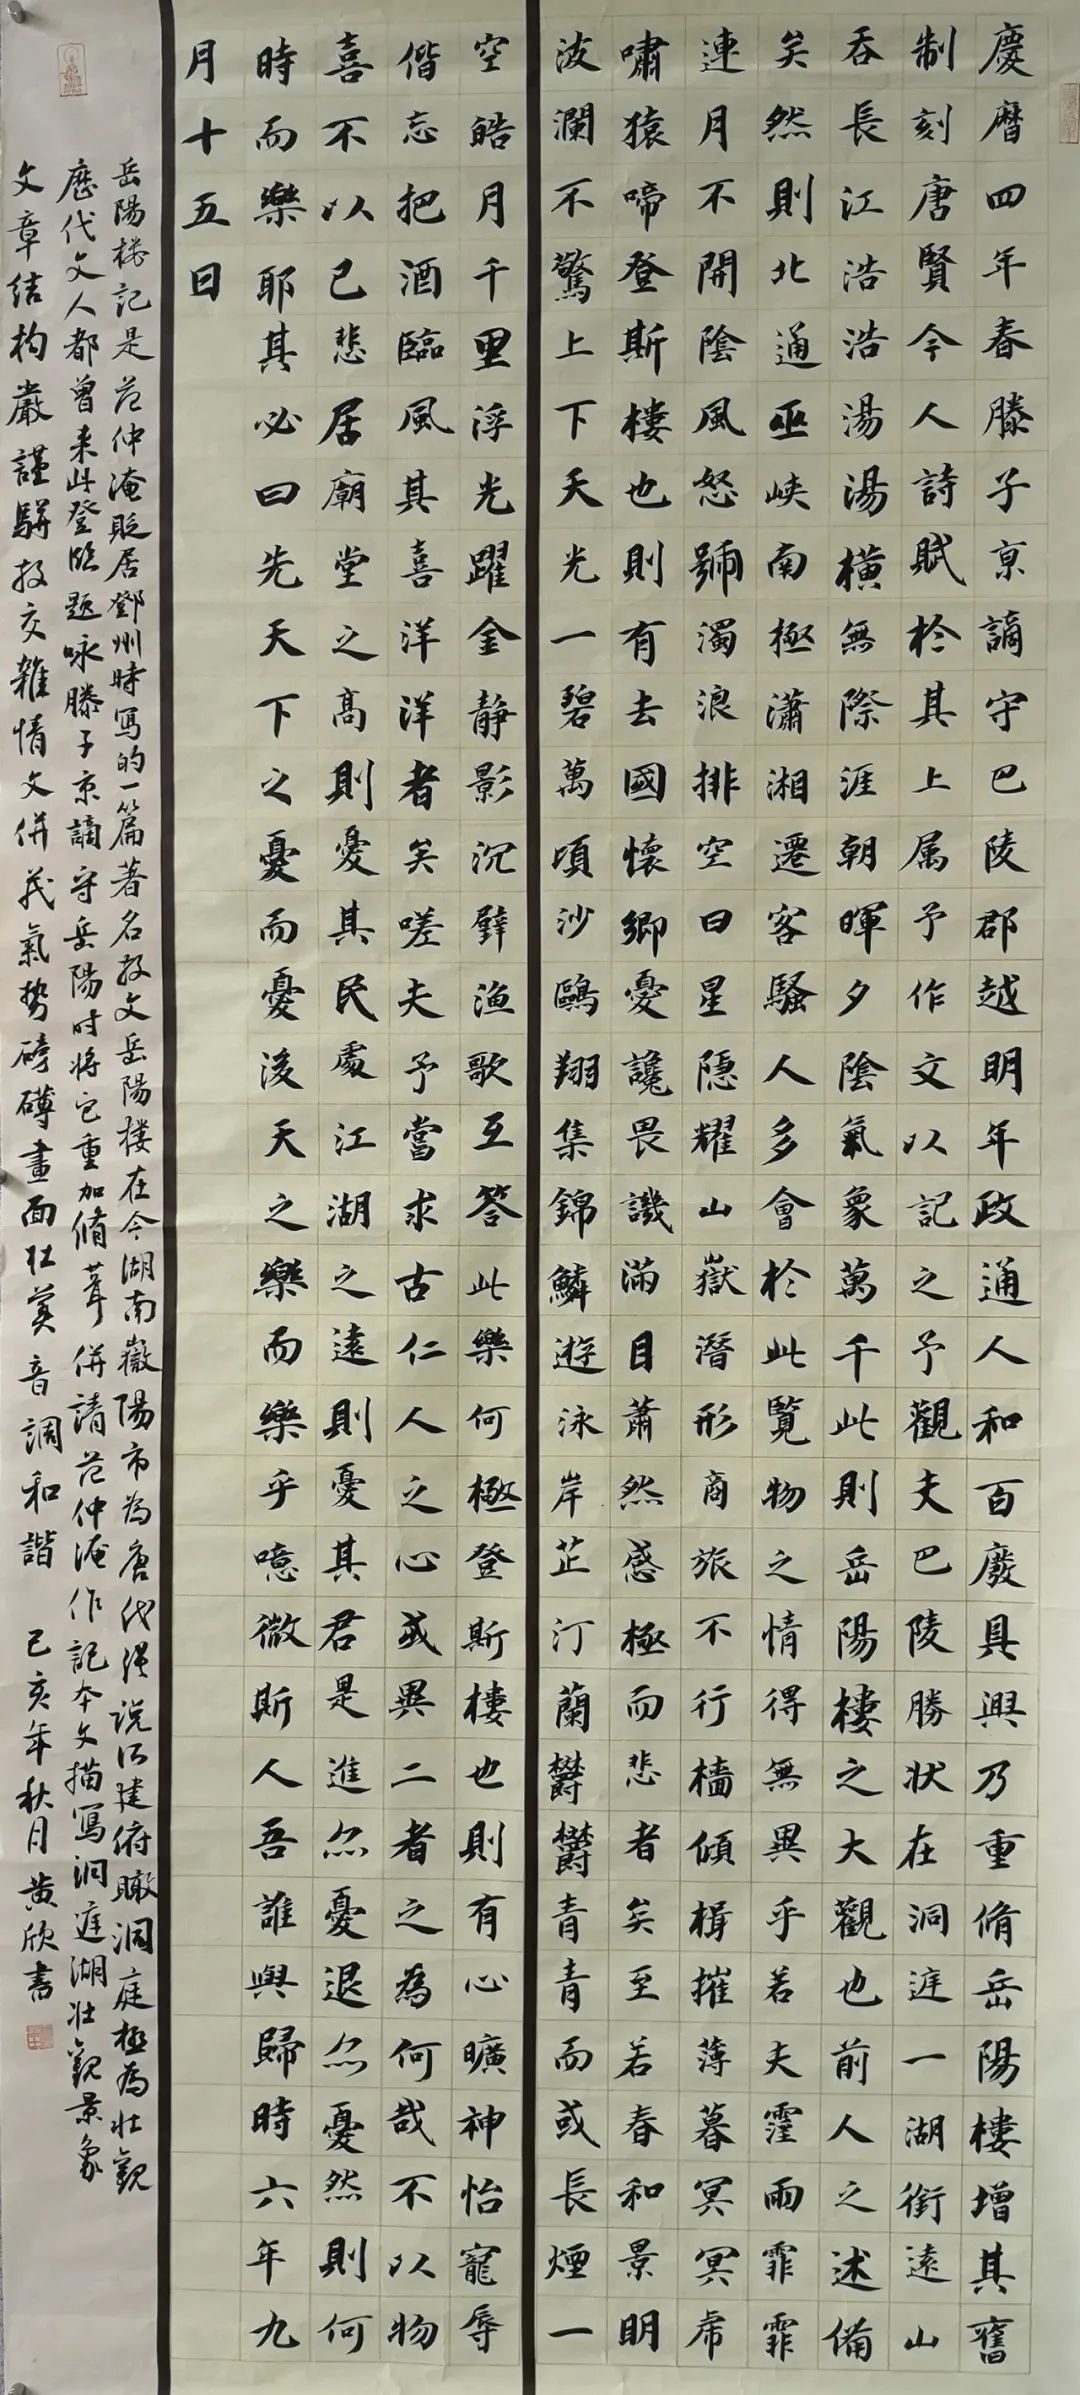 慶曆四年春滕子京謫守巴陵郡越明年政通人和百廢具興乃重脩岳陽樓增其舊
制刻唐賢今人詩賦於其上属予作文以記之予觀夫巴陵勝状在洞庭一湖銜遠山
吞長江浩浩湯湯橫無際涯朝暉夕陰氣象萬千此則岳陽樓之大觀也前人之述備
矣然則北通巫峽南極瀟湘遷客騷人多會於此覽物之情得無異乎若夫霪雨霏霏
連月不開陰風怒號濁浪排空日星隱耀山嶽潛形商旅不行檣傾楫摧薄暮冥冥虎
嘯猿啼登斯樓也則有去國懷鄉憂讒畏譏滿目蕭然感極而悲者矣至若春和景明
波瀾不驚上下天光一碧萬頃沙鷗翔集錦鱗遊泳岸芷汀蘭欝欝青青而或長煙一
空皓月千里浮光躍金静影沉璧渔歌互答此樂何極登斯樓也則有心曠神怡寵辱
偕忘把酒臨風其喜洋洋者矣嗟夫予當求古仁人之心或異二者之為何哉不以物
喜不以己悲居廟堂之高則憂其民處江湖之遠則憂其君是進亦憂退亦憂然則何
時而樂耶其必曰先天下之憂而憂後天之樂而樂乎噫微斯人吾誰與歸時六年九
月十五日
岳陽楼記是范仲淹貶居鄧州時寫的一篇著名散文岳陽楼在今湖南嶽陽市為唐代張説所建俯瞰洞庭極為壮觀
歷代文人都曾来此登臨题咏滕子京謫守岳陽时将它重加脩葺併請范仲淹作記本文描寫洞庭湖壮觀景象
文章结构嚴謹駢散交雜情文併茂氣势磅礴畫面壮美音調和諧 己亥年秋月黄欣書